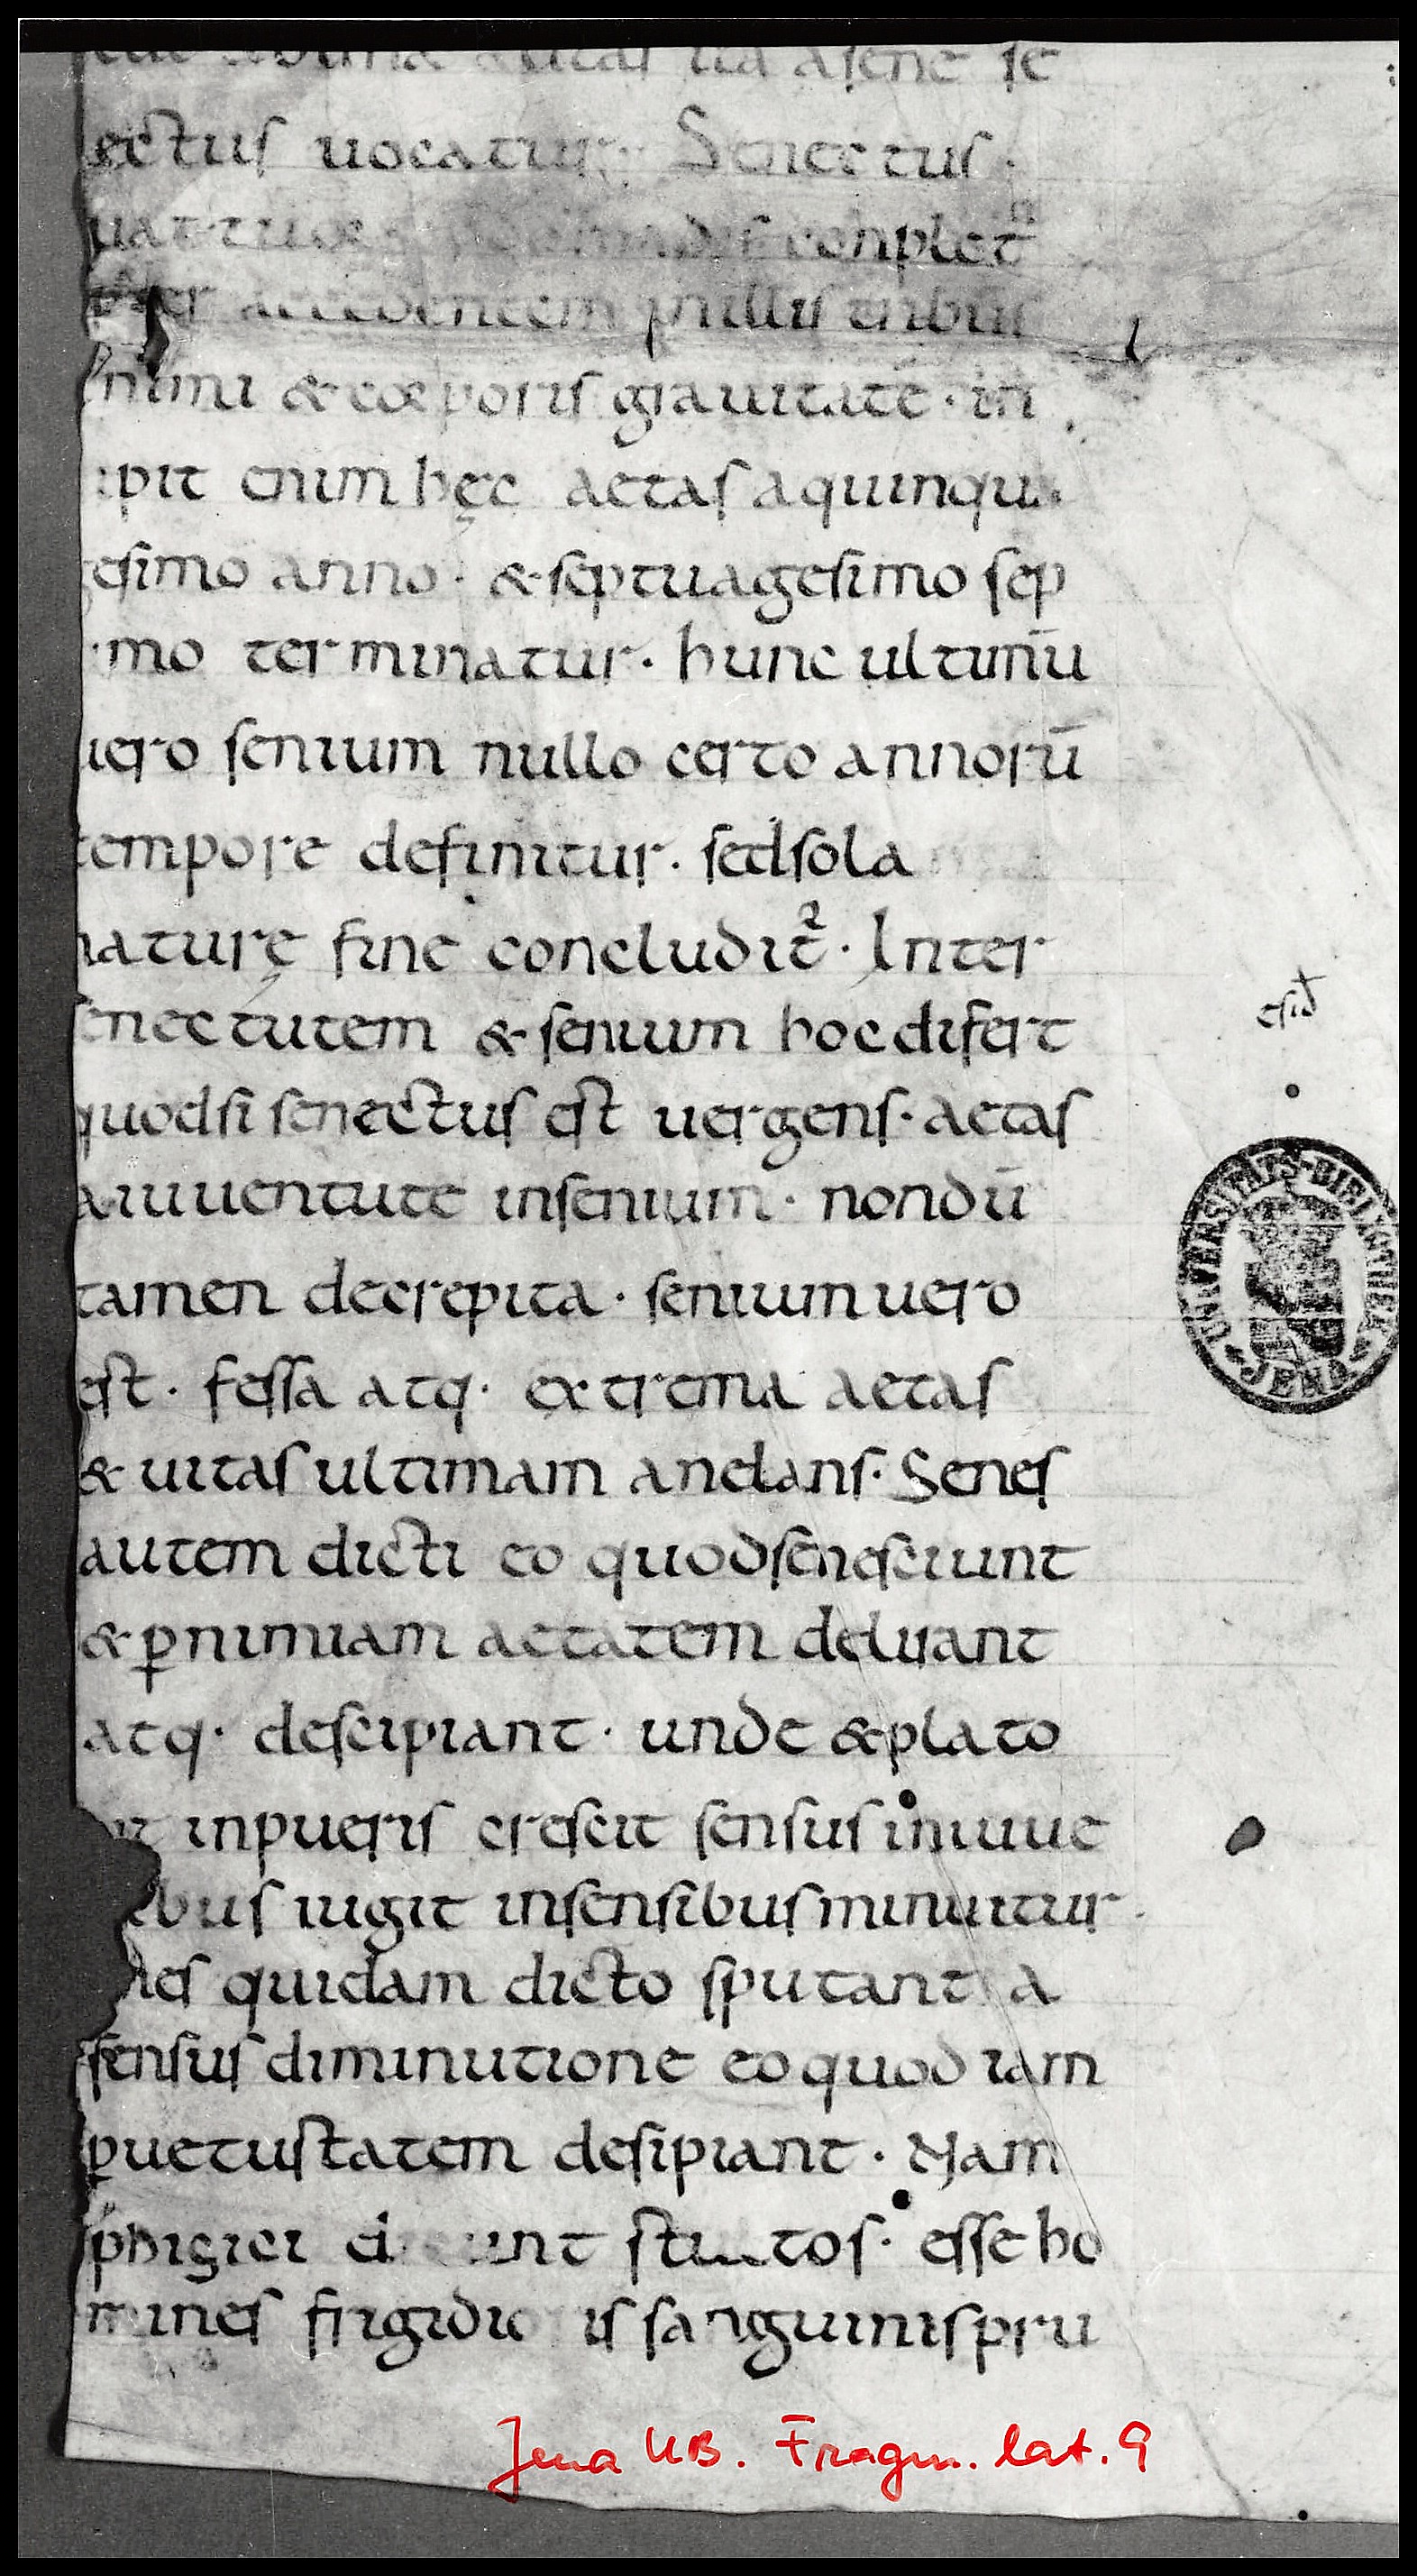 asene se
ectus uocatur. Senectus.
conplet
accedentem in illis tribus
nimi & corporis grauitate. in
ipit enim hęc aetas aquinqua
gesimo anno. & septuagesimo sep
imo terminatur. hunc ultimū
uero senium nullo certo annorū
tempore definitur. sedsola
naturę fine concludit᷑. Inter
senectutem & senium hoc difert
quodsi senectus est uergens. aetas
a iuuentute insenium. nondū
tamen decrepita. senium uero
est. fessa atq. extrema aetas
& uitas ultimam anelans. Senes
autem dicti eo quodsenescunt
& ꝑnimiam aetatem delirant
atq. descipiant. unde &plato
it inpueris crescit sensus iniuue
ibus uigit insensibusminuitur.
nes quidam dicto sputant a
sensus diminutione eoquod iam
ꝑuetustatem desipiant. Nam
phigici unt stultos. esse ho
mines frigidio is sanguinispru
esid
UNIVERSITÄTS-BIBLIOTHEK
JENA
Jena UB. Fragm. lat. 9